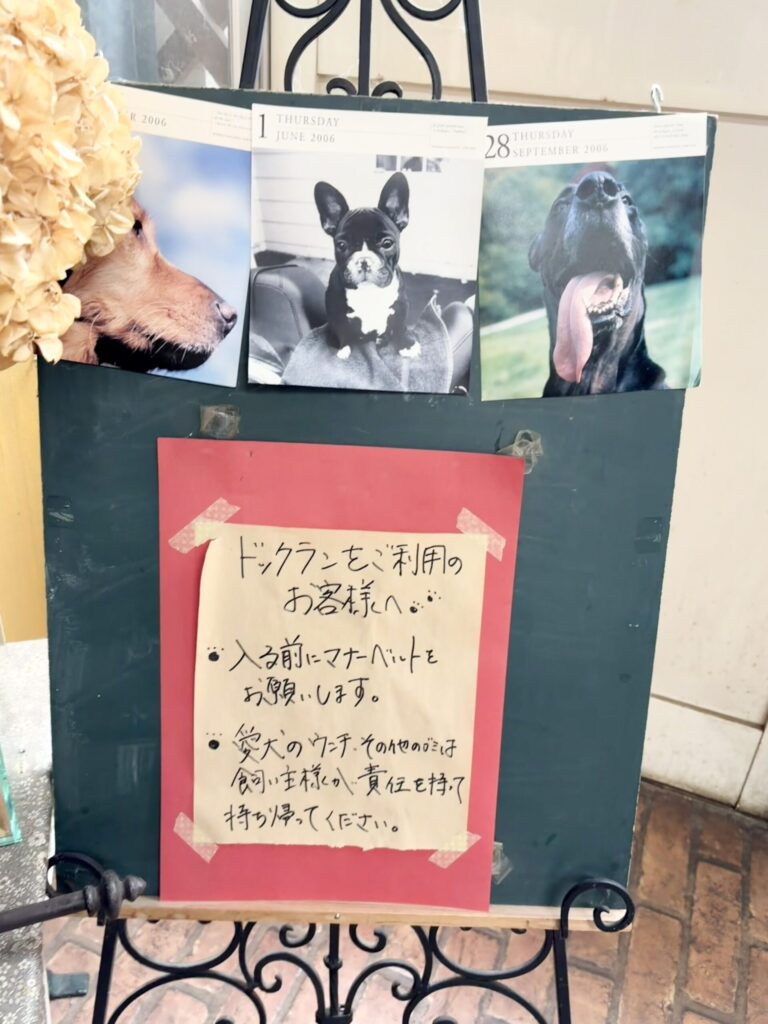 ER 2006
1 THURSDAY
JUNE 2006
28 THURSDAY
SEPTEMBER 2006
ドックランをご利用の
お客様へ
・入る前にマナーベルトを
お願いします。
・愛犬のウンチ、その他のゴミは
飼い主様が責任を持って
持ち帰ってください。